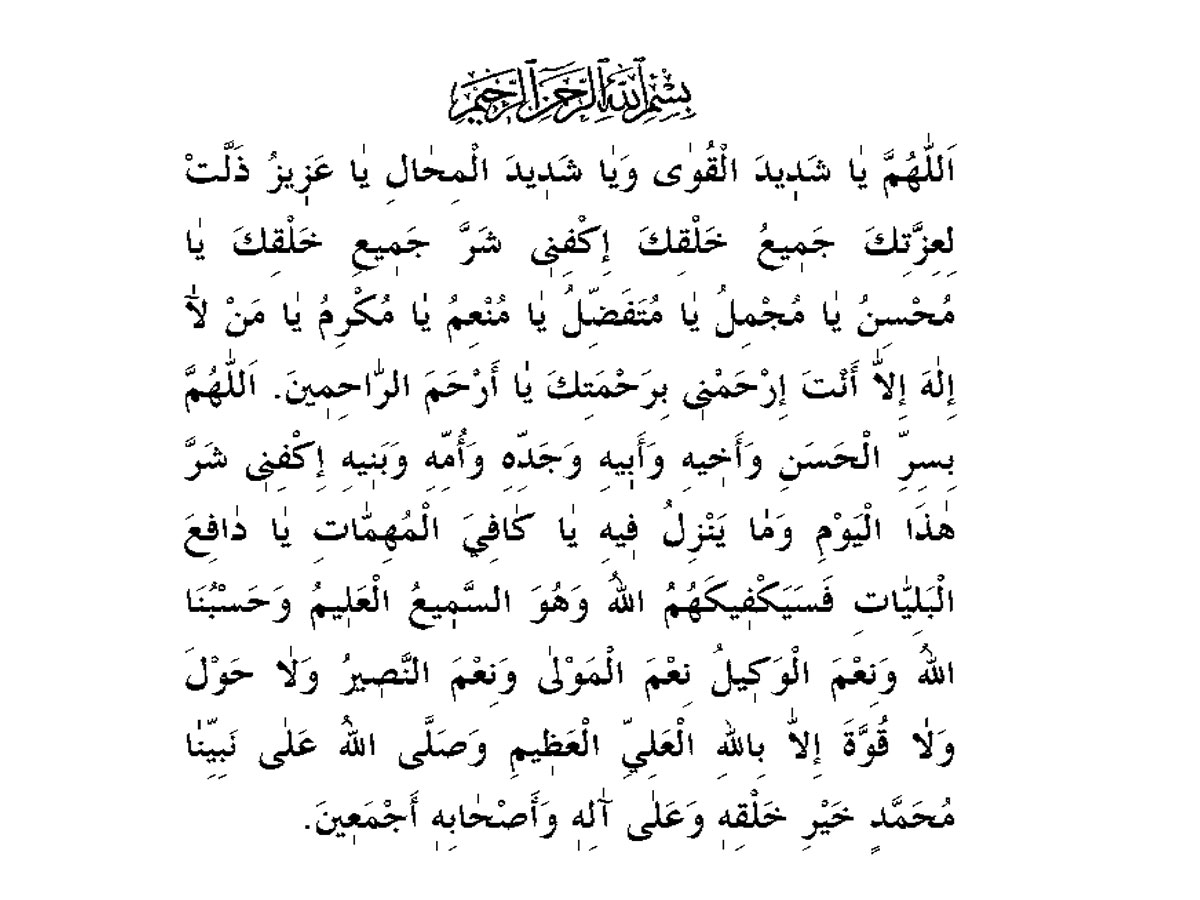 بِسْمِ اللهِ الرَّحْمٰنِ الرَّحِيمِ
اَللّٰهُمَّ يٰا شَدٖيدَ الْقُوٰى وَيٰا شَدٖيدَ الْمِحٰالِ يٰا عَزٖيزُ ذَلَّتْ
لِعِزَّتِكَ جَمٖيعُ خَلْقِكَ إِكْفِنٖى شَرَّ جَمٖيعِ خَلْقِكَ يٰا
مُحْسِنُ يٰا مُجْمِلُ يٰا مُتَفَضِّلُ يٰا مُنْعِمُ يٰا مُكْرِمُ يٰا مَنْ لٰٓا
إِلٰهَ إِلاّٰ أَنْتَ إِرْحَمْنٖى بِرَحْمَتِكَ يٰا أَرْحَمَ الرّٰاحِمٖينَ. اَللّٰهُمَّ
بِسِرِّ الْحَسَنِ وَأَخٖيهِ وَأَبٖيهِ وَجَدِّهِ وَأُمِّهِ وَبَنٖيهِ إِكْفِنٖى شَرَّ
هٰذَا الْيَوْمِ وَمٰا يَنْزِلُ فٖيهِ يٰا كٰافِيَ الْمُهِمّٰاتِ يٰا دٰافِعَ
الْبَلِيّٰاتِ فَسَيَكْفٖيكَهُمُ اللهُ وَهُوَ السَّمٖيعُ الْعَلٖيمُ وَحَسْبُنَا
اللهُ وَنِعْمَ الْوَكٖيلُ نِعْمَ الْمَوْلٰى وَنِعْمَ النَّصٖيرُ وَلٰا حَوْلَ
وَلٰا قُوَّةَ إِلاّٰ بِاللهِ الْعَلِيِّ الْعَظٖيمِ وَصَلَّى اللهُ عَلٰى نَبِيِّنٰا
مُحَمَّدٍ خَيْرِ خَلْقِهٖ وَعَلٰى آٰلِهٖ وَأَصْحٰابِهٖ أَجْمَعٖينَ.